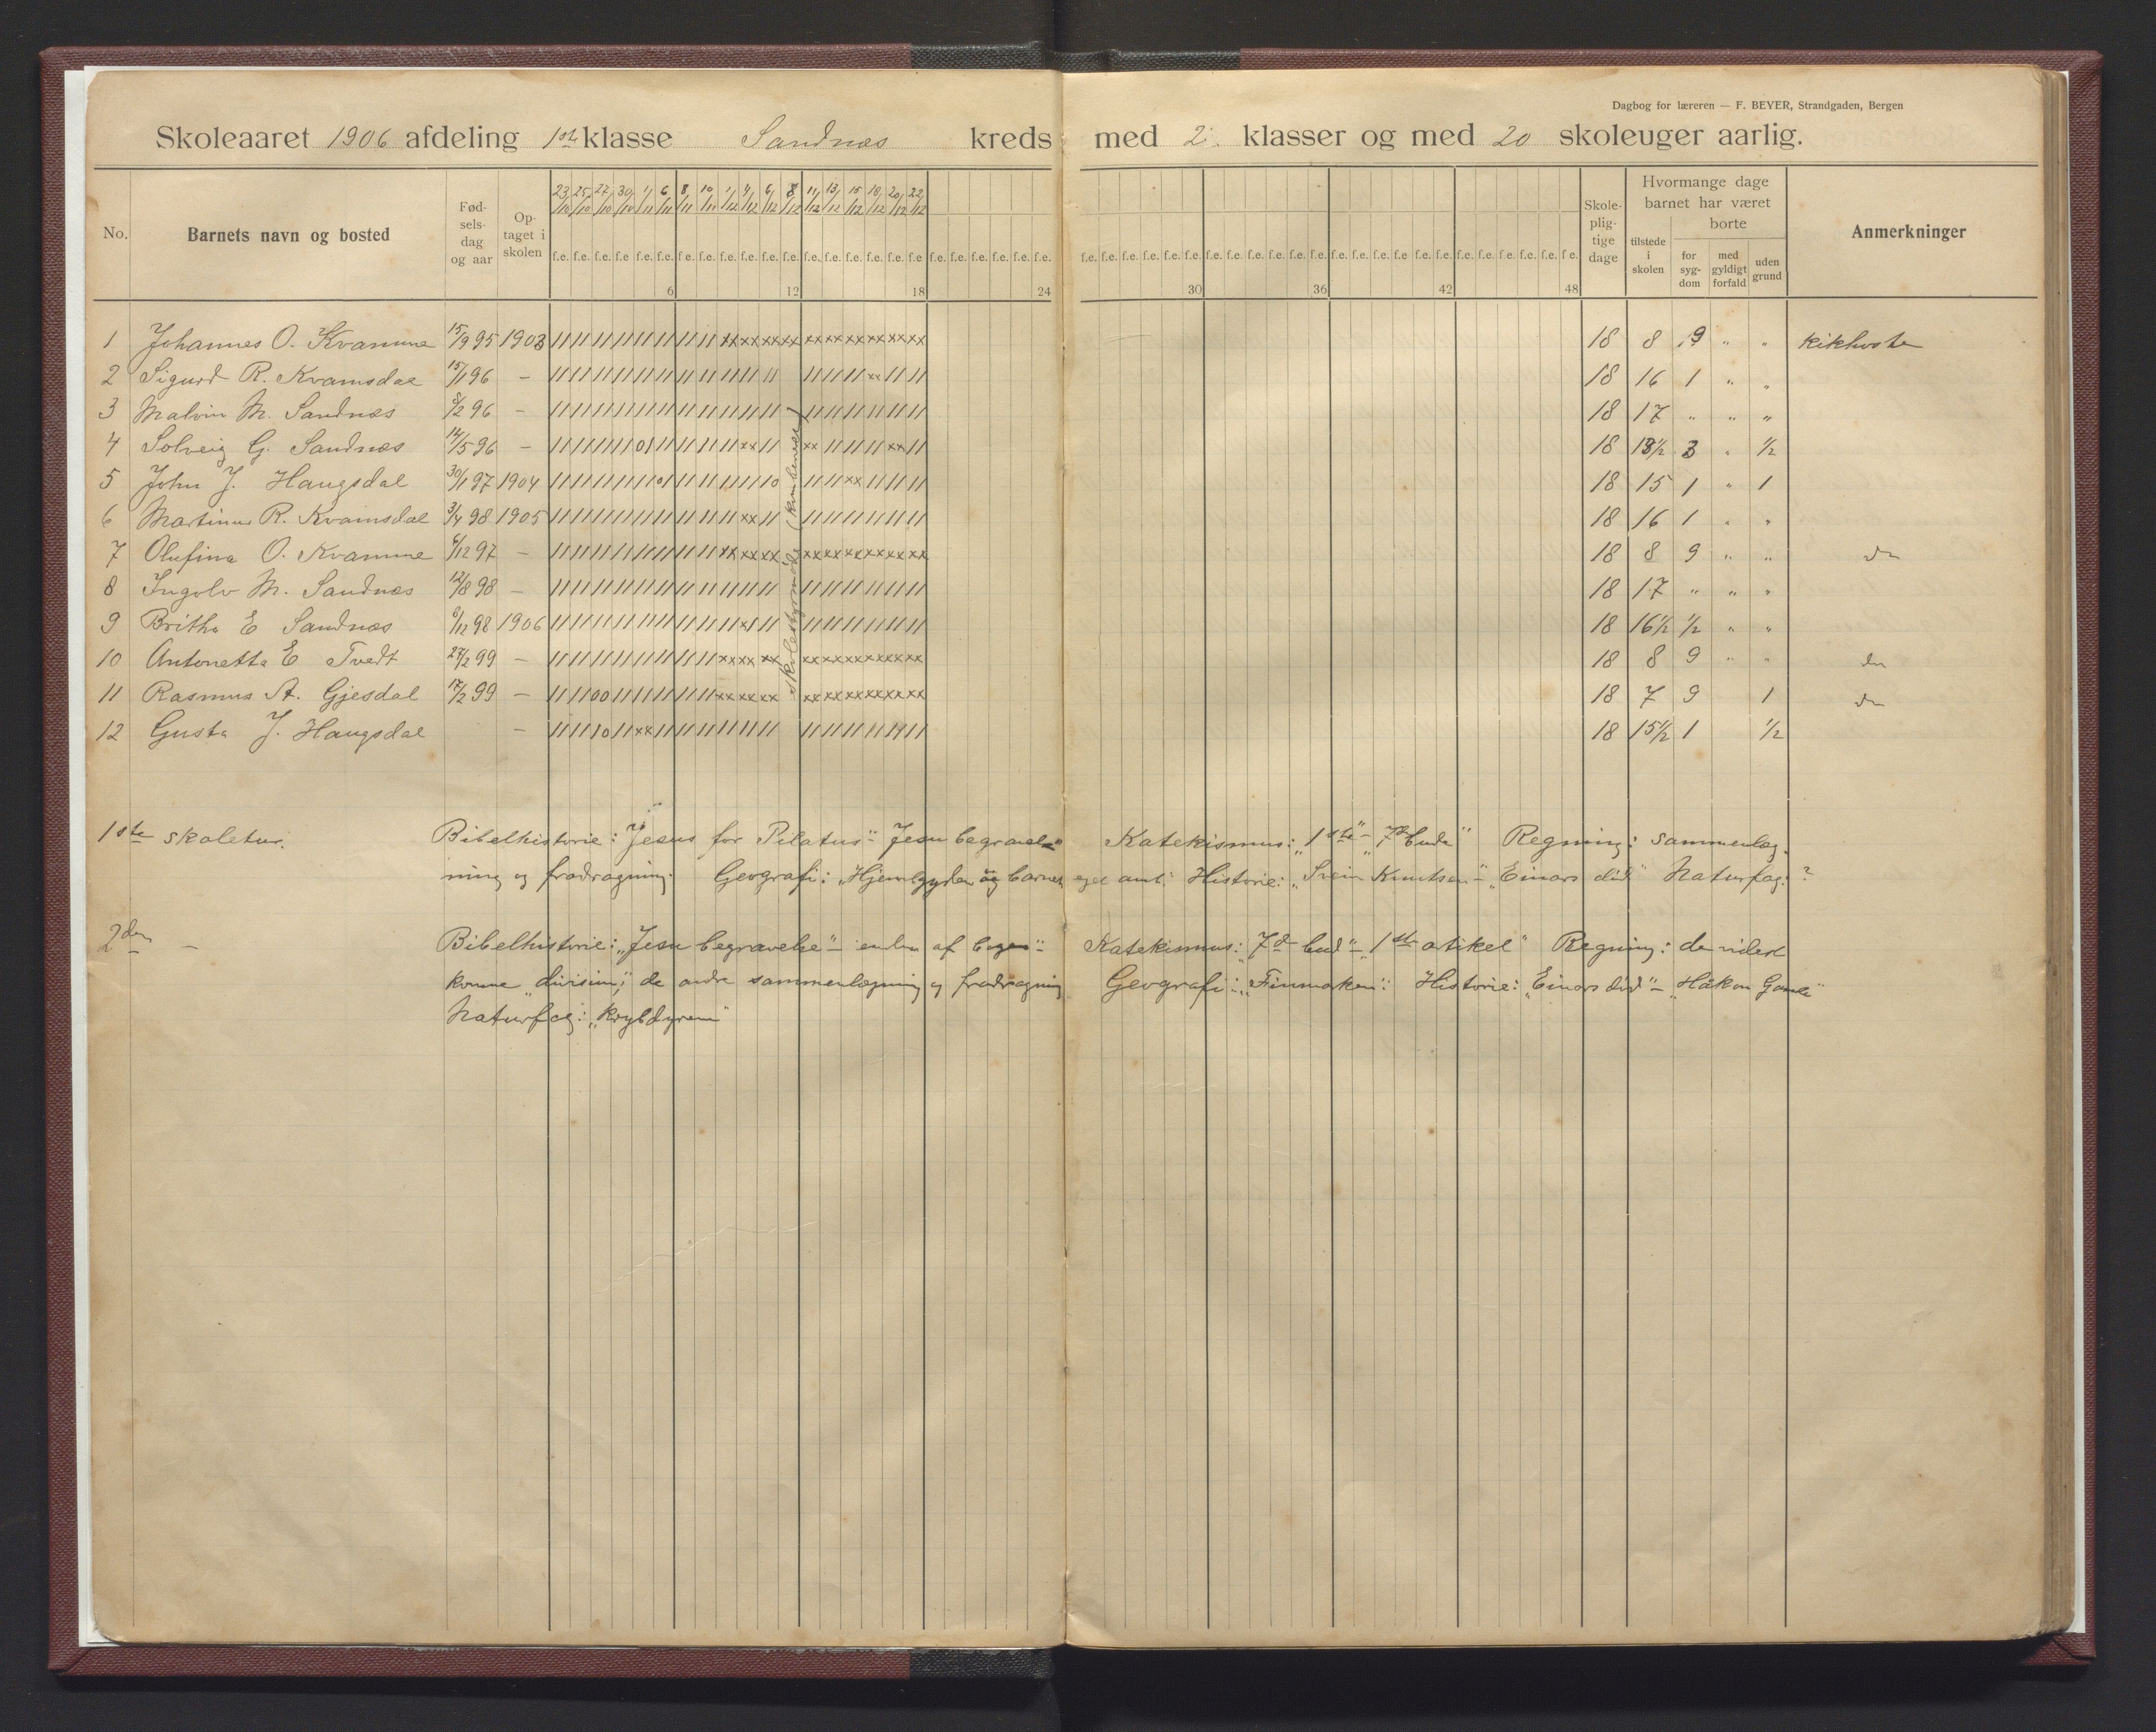 Dagbog for læreren — F. BEYER, Strandgaden, Bergen
Skoleaaret 1906 afdeling 1ste klasse Sandnæs kreds med 2 klasser og med 20 skoleuger aarlig.
No. Barnets navn og bosted Fødselsdag og aar Optaget i skolen 23/10 25/10 27/10 30/10 1/11 6/11 8/11 10/11 1/12 4/12 6/12 8/12 11/12 13/12 15/12 18/12 20/12 22/12 Skolepligtige dage Hvormange dage barnet har været tilstede i skolen borte for sygdom med gyldigt forfald uden grund Anmerkninger
6 12 18 24 30 36 42 48
1 Johannes O. Kvamme 15/9 95 1903 18 8 9 " " kikhoste
2 Sigurd R. Kvamsdal 15/1 96 — 18 16 1 " "
3 Malvin M. Sandnæs 8/2 96 — 18 17 " " "
4 Solveig G. Sandnæs 14/5 96 — 18 13½ 3 " ½
5 John J. Haugsdal 30/1 97 1904 18 15 1 " 1
6 Martinus R. Kvamsdal 3/4 98 1905 18 16 1 " "
7 Olufina O. Kvamme 6/12 97 — 18 8 9 " " do
8 Ingolv M. Sandnæs 12/8 98 — 18 17 " " "
9 Britha E Sandnæs 8/12 98 1906 18 16½ ½ " "
10 Antonetta E Tvedt 27/2 99 — 18 8 9 " " do
11 Rasmus A. Gjesdal 17/2 99 — 18 7 9 1 do
12 Gusta J. Haugsdal — 18 15½ 1 ½
skolestyremøde
1ste skoletur. Bibelhistorie: "Jesus for Pilatus" - Jesu begravelse" Katekismus: "1ste" - "7de bud" Regning: sammenlæg-
ning og fradragning. Geografi: "Hjembygden og barnets eget amt. Historie: "Svein Knutsen" - "Einars död" Naturfag: ?
2den — Bibelhistorie: "Jesu begravelse" - enden af bogen" Katekismus: "7de bud" - "1ste artikel" Regning: de videst
komne "division"; de andre sammenlægning og fradragning Geografi: "Finmarken". Historie: "Einars död" - "Håkon Gamle"
Naturfag: "krybdyrene"